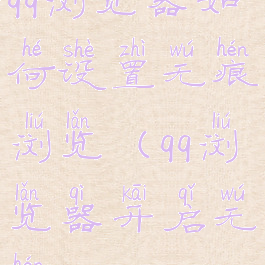 qq浏览器如
hé shè zhì wú hén
何设置无痕
liú lǎn liú
浏览（qq浏
lǎn qì kāi qǐ wú
览器开启无
hén